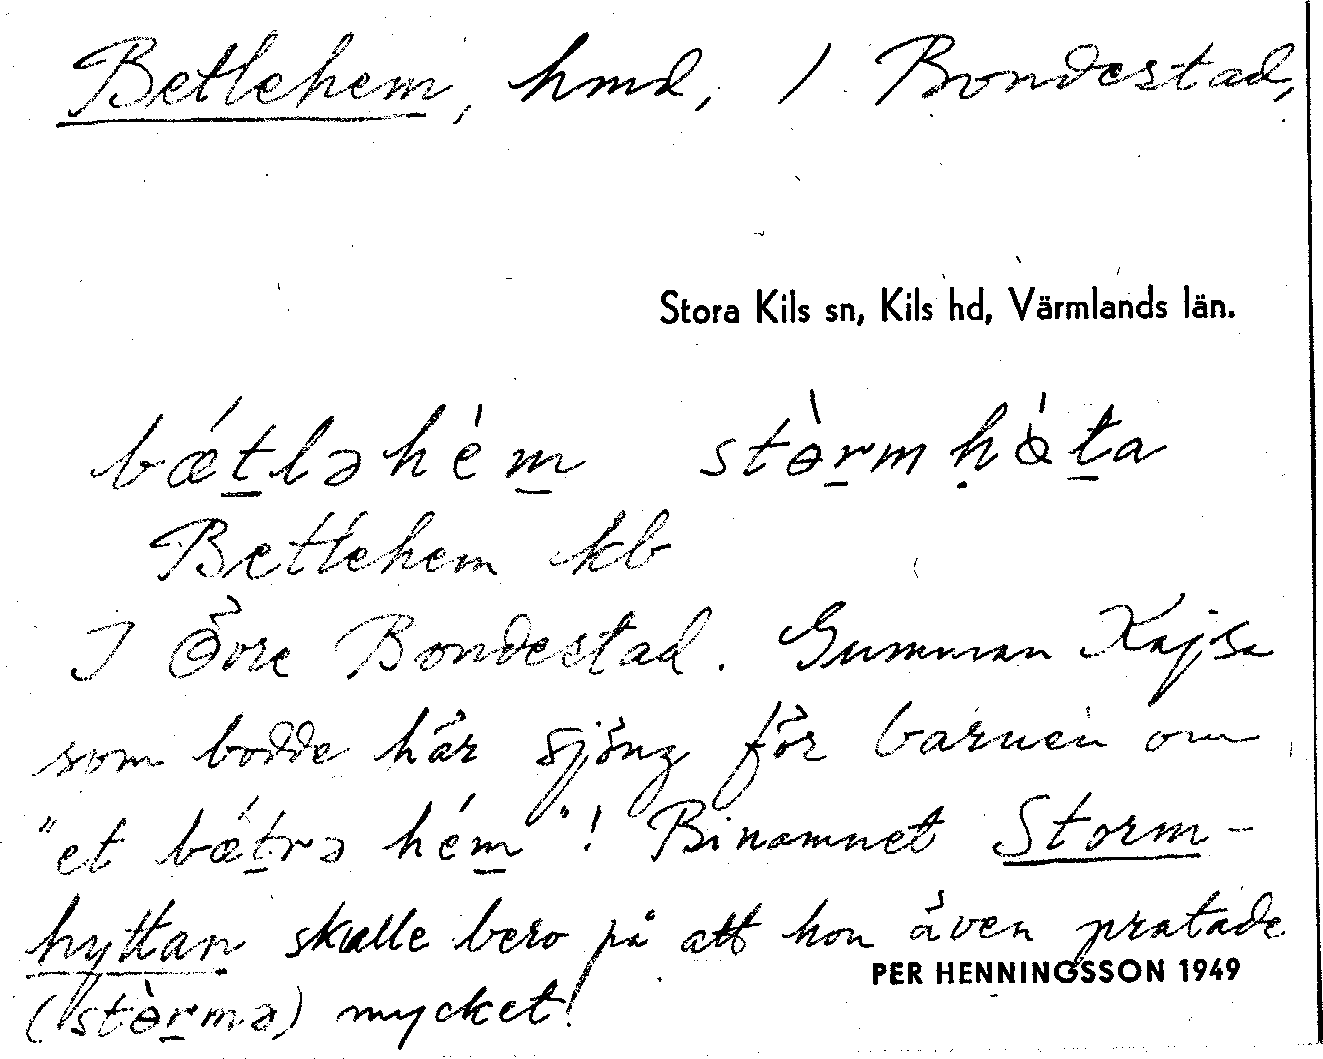 Betlehem, hmd, / Bondestad,
Stora Kils sn, Kils hd, Värmlands län.
bǽt̲ləhèm̲ stɵ̀r̲mḥɵ̀t̲a
Betlehem kb
I Övre Bondestad. Gumman Kajsa
som bodde här sjöng för barnen om
"et bǽt̲rə hém̲"! Binamnet Storm-
hyttan skulle bero på att hon även pratade
PER HENNINGSSON 1949
(stɵ̀r̲mə) mycket!